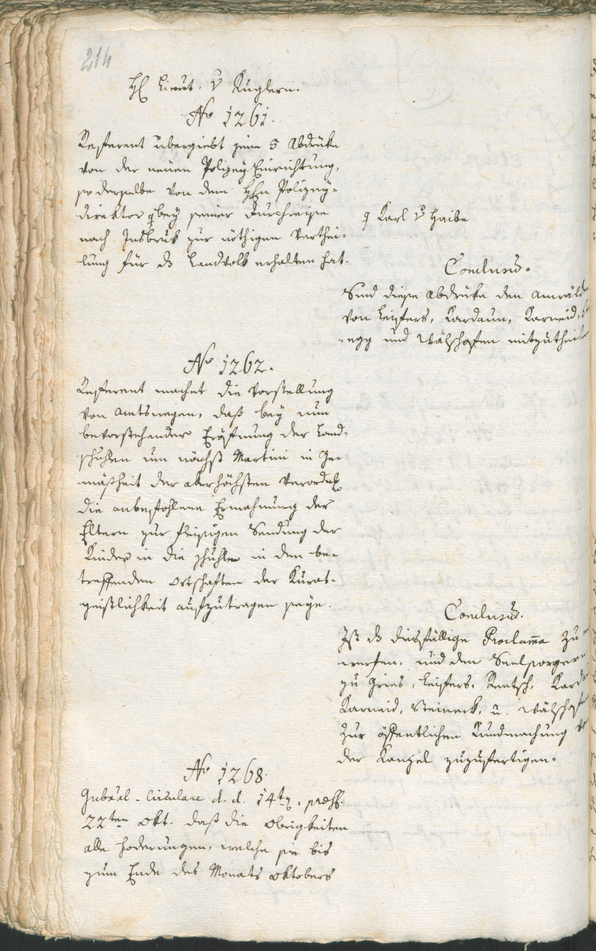 214
H Lieut. v Kuglern.
No 1261.
Referent übergiebt jene 5 Abdrüke
von der neuen Polizey Einrichtung,
so derselbe von dem Hhn Polizey-
direktor bey seiner Durchreise
nach Insbruk zur nöthigen Verthei-
lung für ds Landvolk erhalten hat.
Karl v Haibe
Conclusum.
Sind diese Abdrüke den Anwäld
von Leifers, Kardaun, Karneid,
egg und Wälschofen mitzutheilen
No 1262.
Referent machet die Vorstellung
von Amtswegen, daß bey nun
bevorstehender Eröfnung der Land-
schuhlen um nächst Martini in Ge-
mäßheit der allerhöchsten Verord
die anbefohlene Ermahnung der
Eltern zur fleißigen Sendung der
Kinder in die Schuhle in den be-
treffenden Ortschaften der Kurat-
geistlichkeit aufzutragen seye.
Conclusum.
Ist ds diesfällige Proclama zu
werfen, und den Seelsorgern
zu Gries, Leifers, Rentsch, Kard
Karneid, Steineck, u. Wälschof
zur öffentlichen Kundmachung
der Kanzel zuzufertigen.
No 1268
Gubaal-Circulare d. d. 14t, praes.
22ten Okt. daß die Obrigkeiten
alle Foderungen, welche sie bis
zum Ende des Monats Oktobers